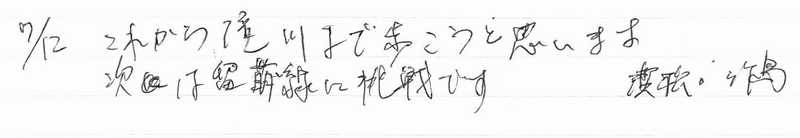 7/12 これから滝川まで歩こうと思います
次回は留萌線に挑戦です